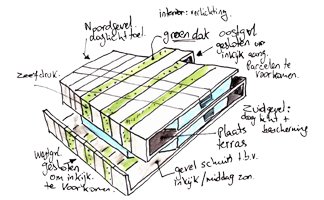 Noordgevel:
daglicht toel.
interieur: verlichting
groen dak
oostgvl
gesloten om
inkijk aang.
Parcelen te
voorkomen.
zeefdruk.
Zuidgevel:
daglicht +
bescherming
Plaats
terras
westgvl.
gesloten
om inkijk.
te voorkomen.
gevel schuift t.b.v.
inkijk/middag zon.